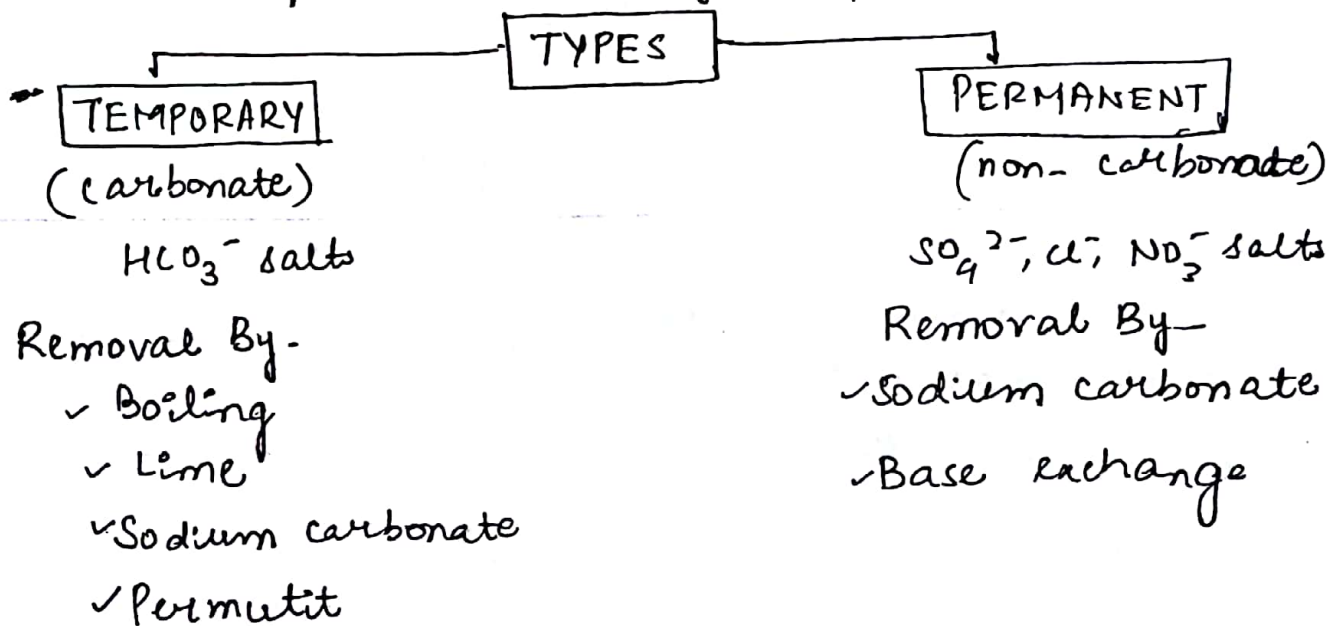 TYPES
TEMPORARY
(carbonate)
HCO₃⁻ salts
Removal By-
✓ Boiling
✓ Lime
✓ Sodium carbonate
✓ Permutit
PERMANENT
(non-carbonate)
SO₄²⁻, Cl⁻, NO₃⁻ salts
Removal By-
✓ Sodium carbonate
✓ Base exchange